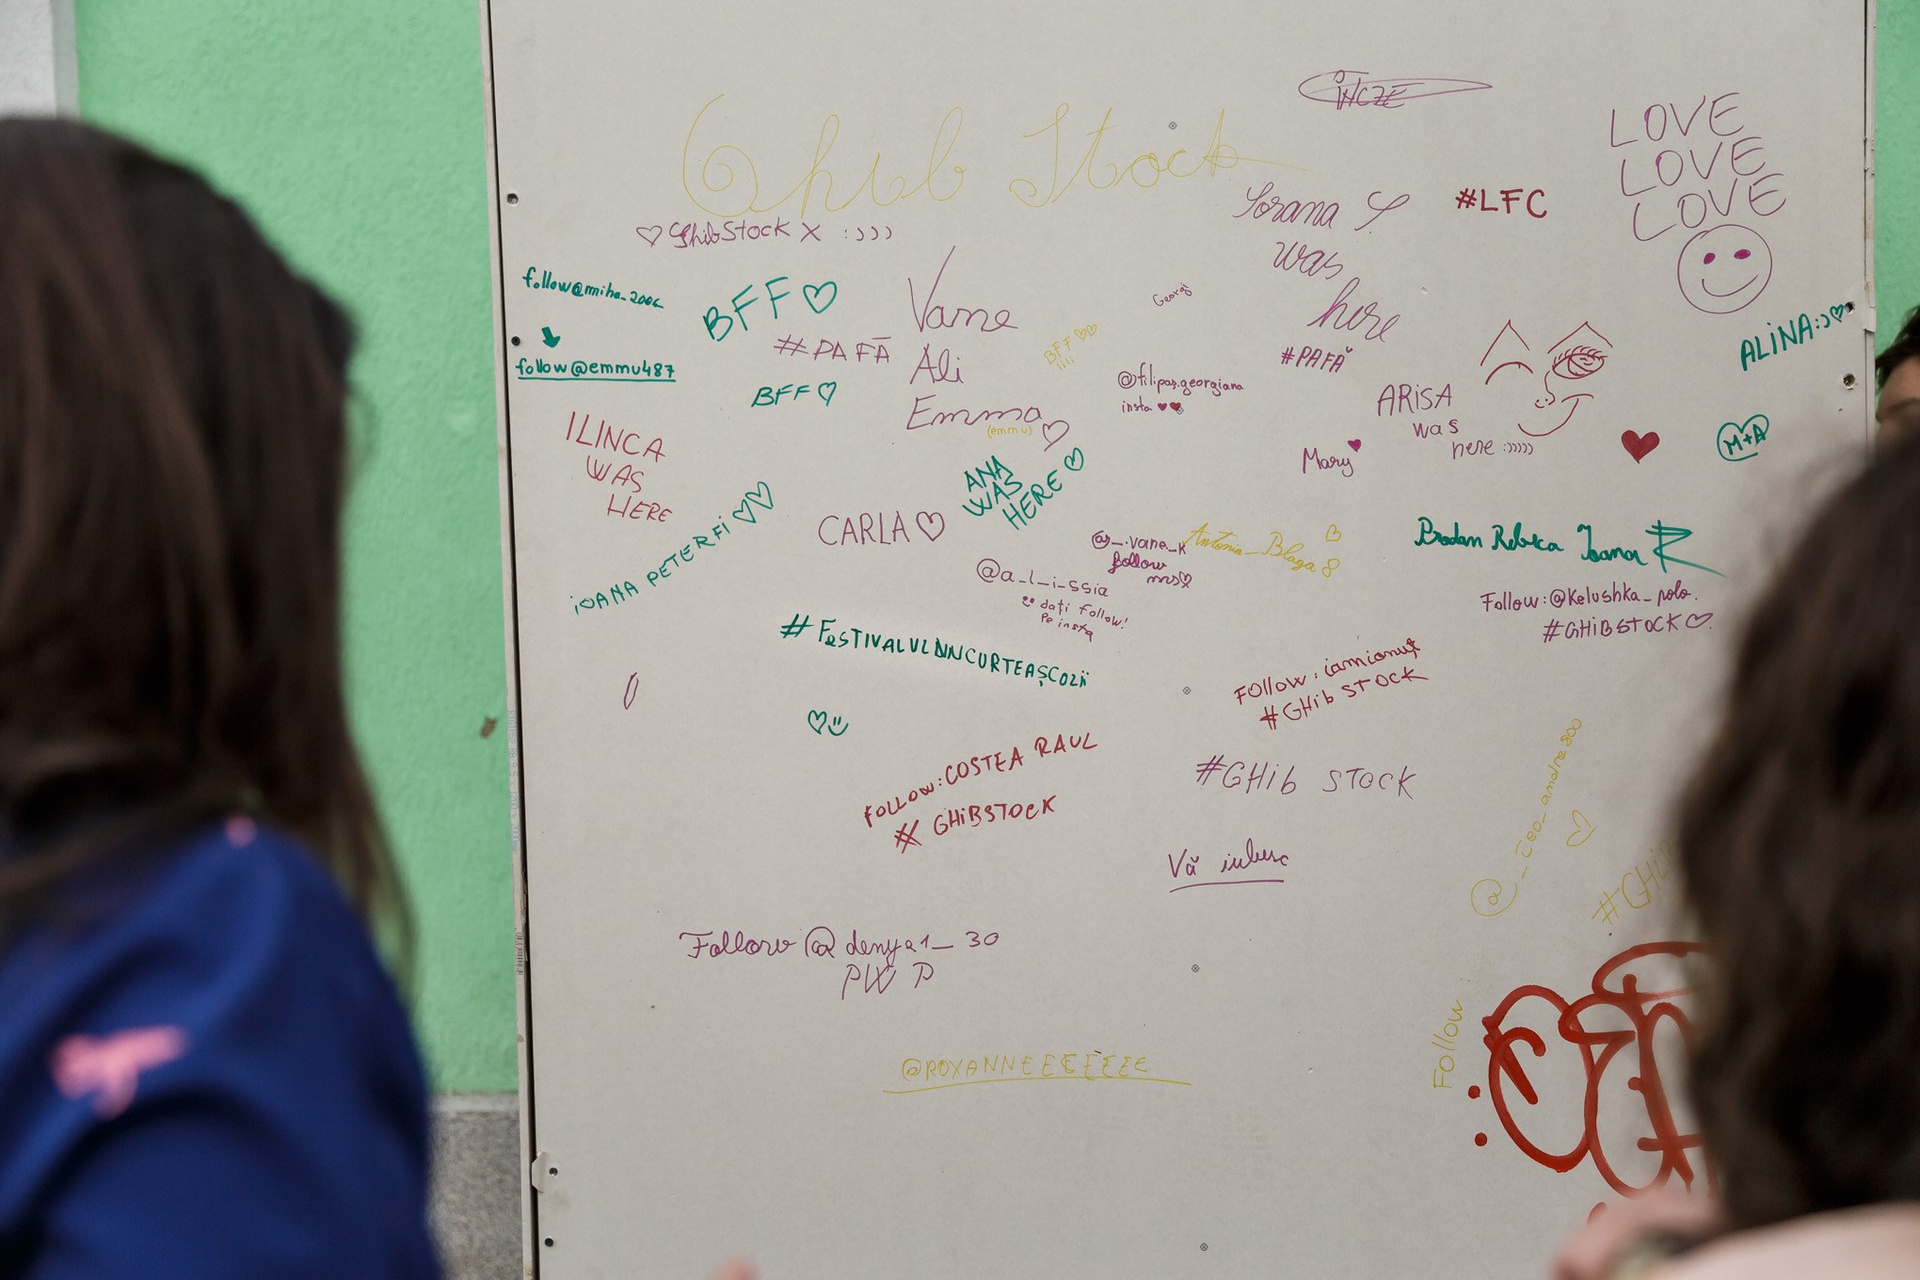 INCZE
Ghib Stock
LOVE
LOVE
LOVE
Sorana
was
here
#LFC
GhibStock X :)))
follow@miha_2006
BFF
Vane
Ali
Emma
(emmu)
#PAFĂ
BFF
Georgi
BFF
#PAFĂ
ALiNA:)
follow@emmu487
BFF
@filipas.georgiana
insta
ARiSA
was
here :)))))
M+A
ILINCA
WAS
HERE
Mary
ANA
WAS
HERE
iOANA PETERFi
CARLA
@_.vane_k
follow
Antonia_Blaga8
Bradam Rebeca Ioana
@a_l_i_ssia
dați follow!
Pe insta
Follow:@Kelushka_polo.
#GHiBSTOCK
#FESTIVALULDINCURTEAȘCOZII
FOllOW: iamionuț
#GHib STOCK
FOLLOW:COSTEA RAUL
# GHiBSTOCK
#GHib STOCK
@_Teo_andra800
#GHi
Vă iubesc
Follow @denya1_30
PW P
@ROXANNEEEEEEE
Follow